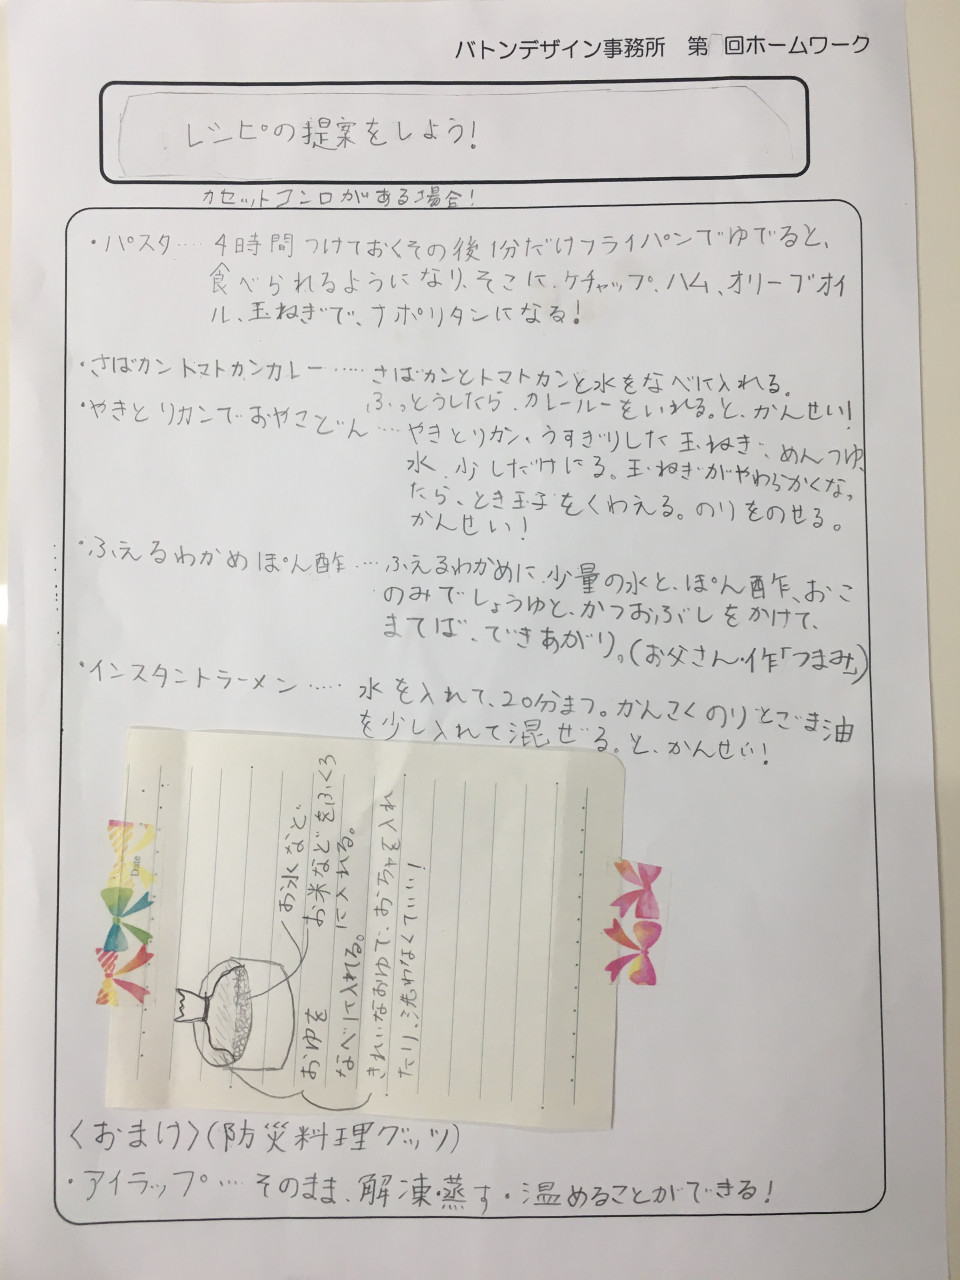 バトンデザイン事務所 第 回ホームワーク
レシピの提案をしよう!
カセットコンロがある場合!
・パスタ…‥ 4時間つけておくその後1分だけフライパンでゆでると、
食べられるようになり、そこに、ケチャップ、ハム、オリーブオイ
ル、玉ねぎで、ナポリタンになる!
・さばカントマトカンカレー…‥ さばカンとトマトカンと水をなべに入れる。
ふっとうしたら、カレールーをいれる。と、かんせい!
・やきとりカンでおやこどん…‥やきとりカン、うすぎりした玉ねぎ、めんつゆ、
水、少しだけにる。玉ねぎがやわらかくなっ
たら、とき玉子をくわえる。のりをのせる。
かんせい!
・ふえるわかめぽん酢…‥ふえるわかめに、少量の水と、ぽん酢、おこ
のみでしょうゆと、かつおぶしをかけて、
まてば、できあがり。(お父さん・作「つまみ」)
・インスタントラーメン…‥ 水を入れて、20分まつ。かんこくのりとごま油
を少し入れて混ぜる。と、かんせい!
Date
お水など
お米などをふくろ
に入れる。
おゆを
なべに入れる。
きれいなおゆで、おちゃを入れ
たり、洗わなくていい!
〈おまけ〉(防災料理グッツ)
・アイラップ…‥そのまま、解凍・蒸す・温めることができる!